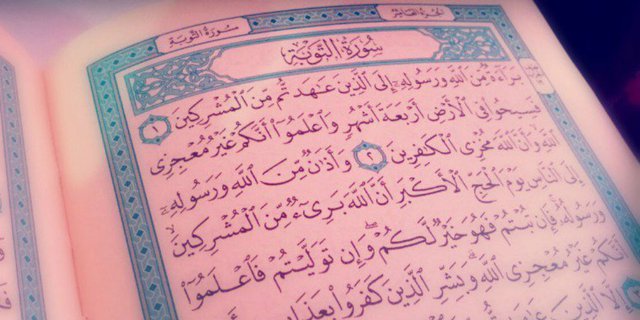 الجزء العاشر
سورة التوبة
سورة التوبة
براءة من الله ورسوله إلى الذين عاهدتم من المشركين ١
فسيحوا في الأرض أربعة أشهر واعلموا أنكم غير معجزي
الله وأن الله مخزي الكافرين ٢ وأذان من الله ورسوله
إلى الناس يوم الحج الأكبر أن الله بريء من المشركين
ورسوله فإن تبتم فهو خير لكم وإن توليتم فاعلموا
أنكم غير معجزي الله وبشر الذين كفروا بعذاب
إلا الذين